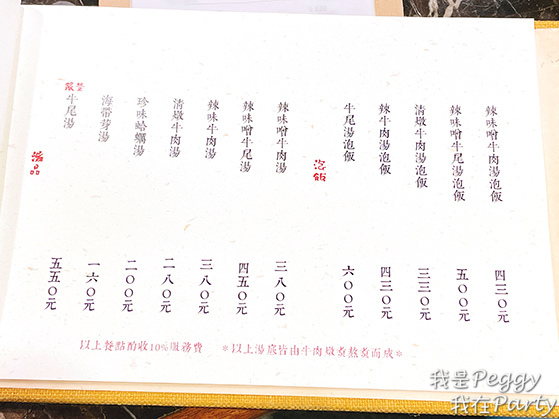 辣味噌牛肉湯泡飯 四三〇元
辣味噌牛尾湯泡飯 五〇〇元
清燉牛肉湯泡飯 三三〇元
辣牛肉湯泡飯 四三〇元
牛尾湯泡飯 六〇〇元
泡飯
辣味噌牛肉湯 三八〇元
辣味噌牛尾湯 四五〇元
辣味牛肉湯 三八〇元
清燉牛肉湯 二八〇元
珍味蛤蠣湯 二〇〇元
海帶芽湯 一六〇元
牛尾湯 五五〇元
湯品
以上餐點酌收10%服務費 *以上湯底皆由牛肉燉煮熬煮而成*
我是Peggy
我在Party